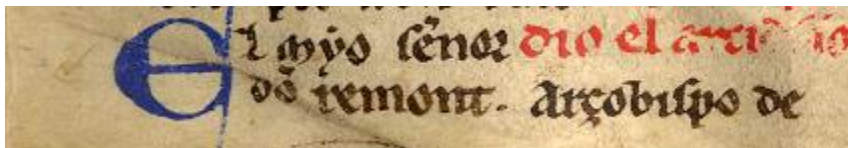 El myo señor dio el
dõ remont. Arçobispo de